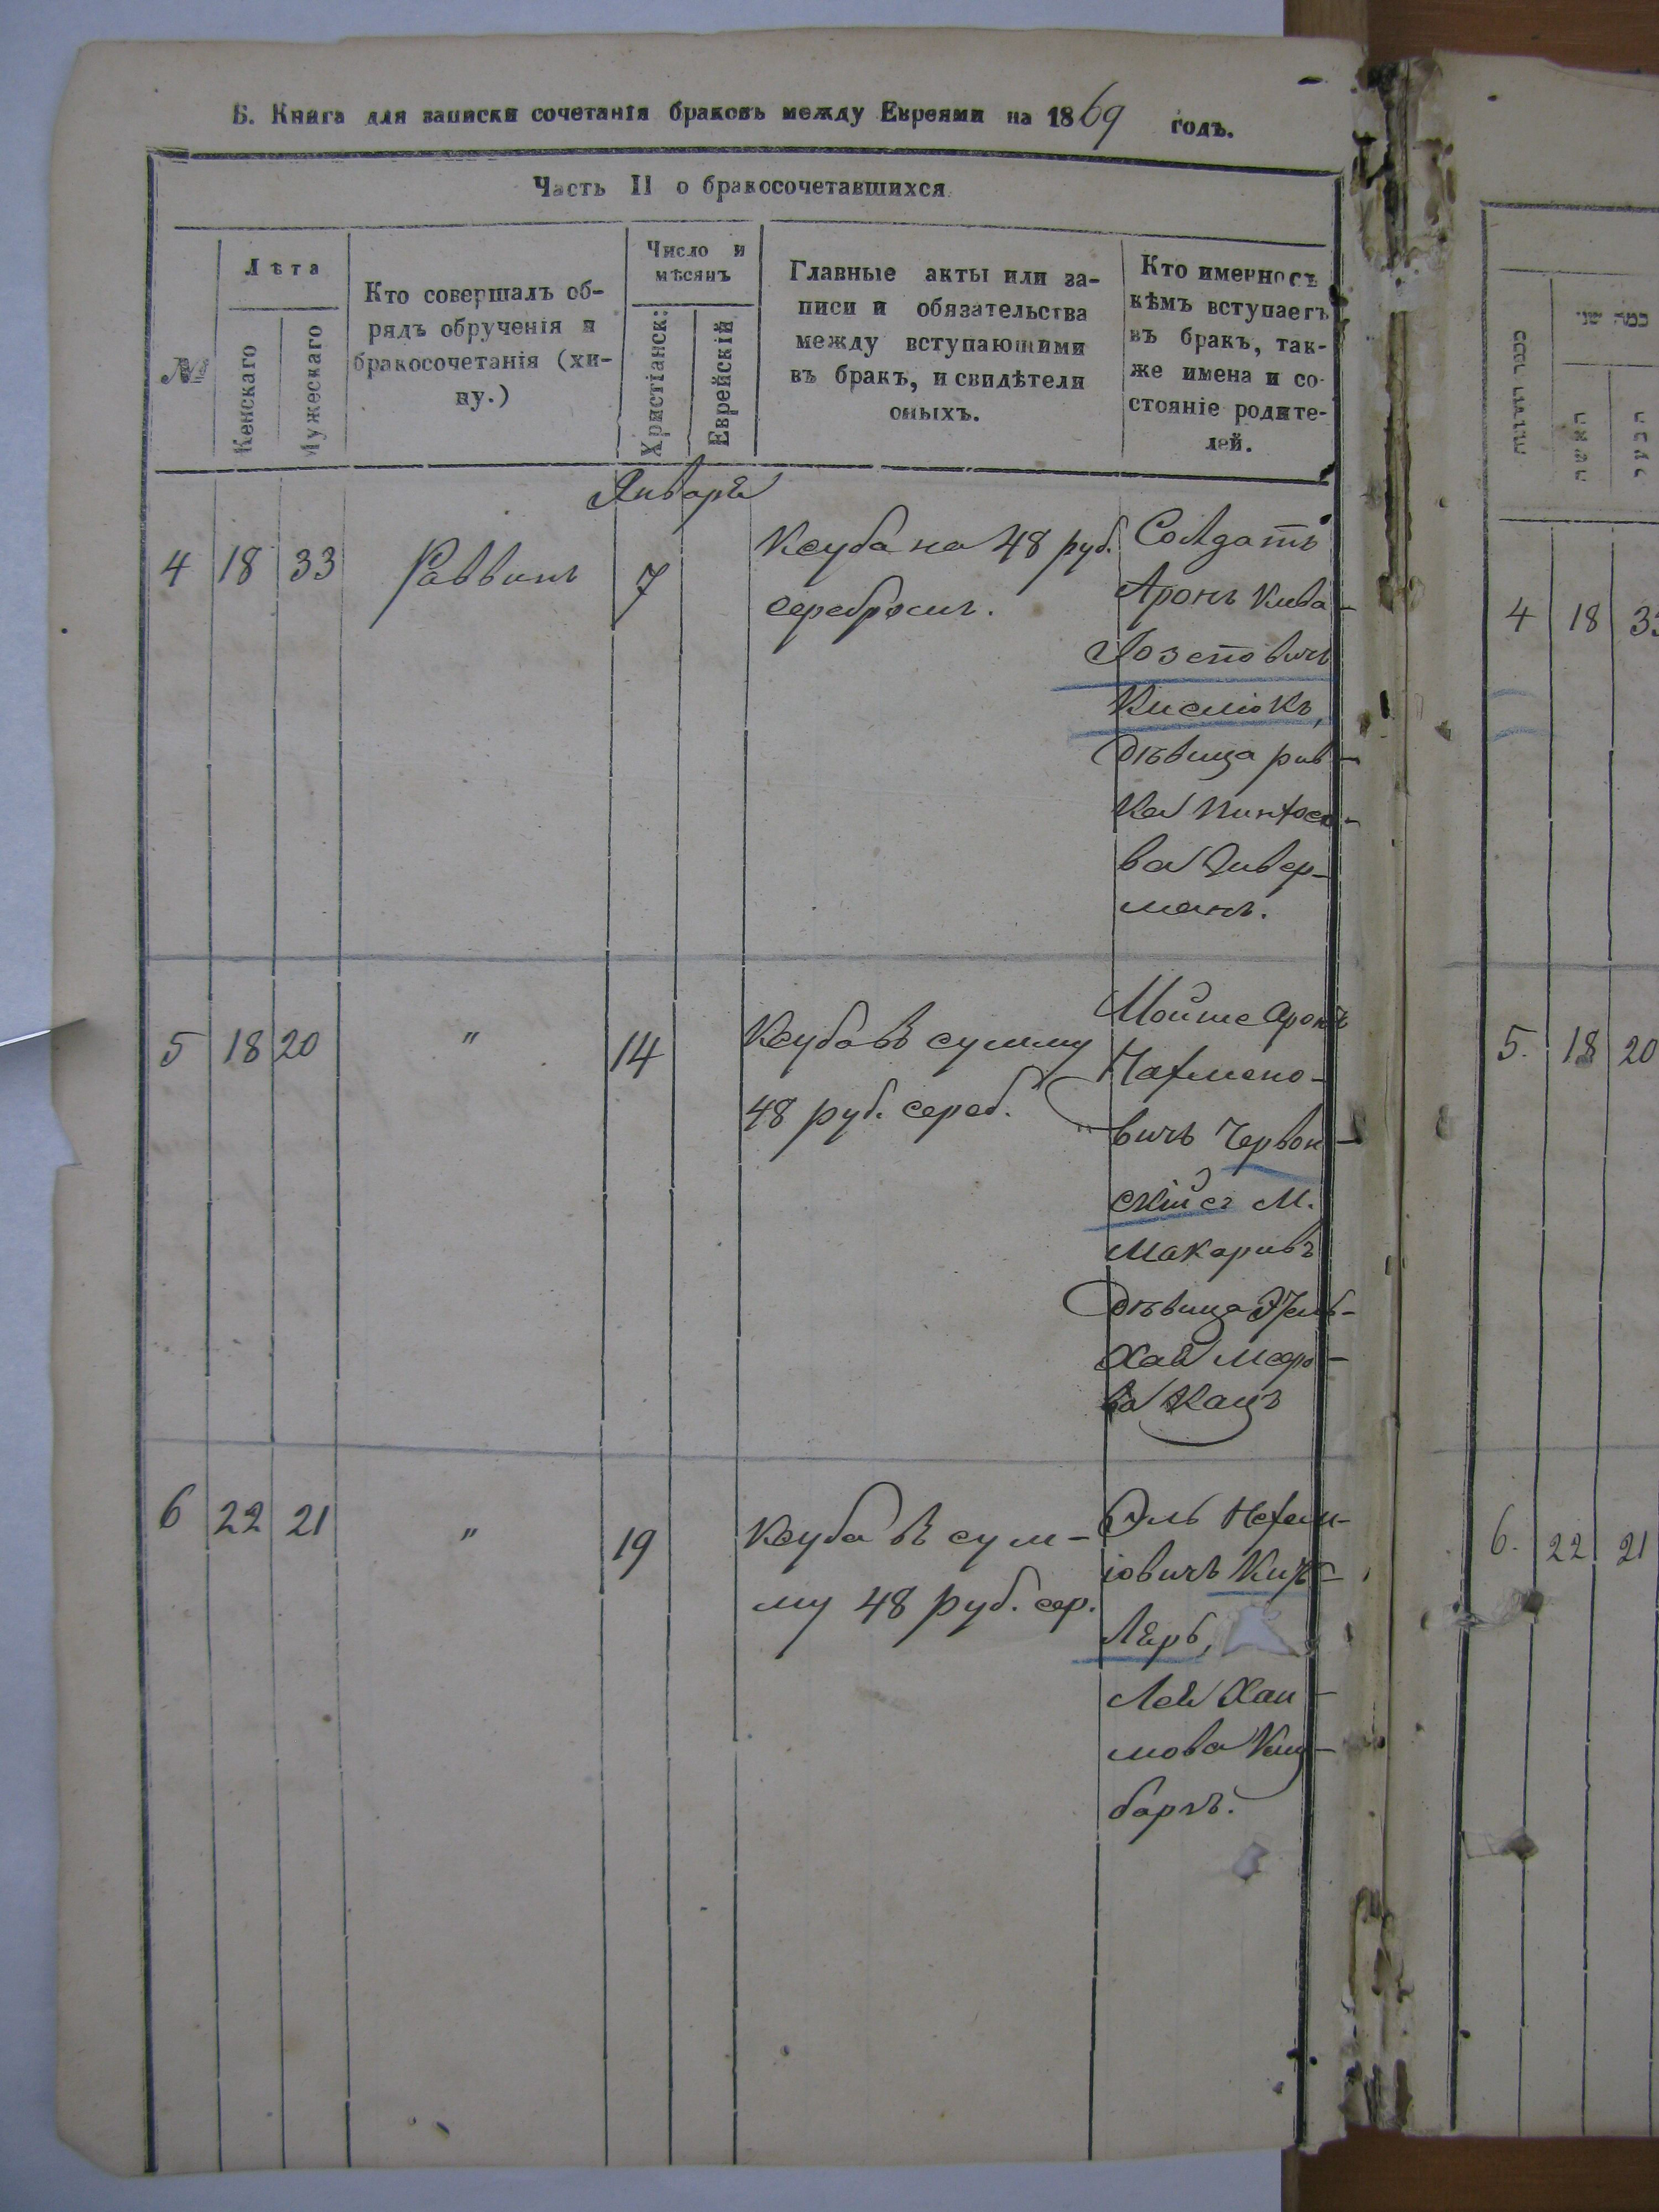 Б. Книга для записки сочетанія браковъ между Евреями на 1869 годъ.
Часть II о бракосочетавшихся
№
Лѣта
Женскаго
Мужескаго
Кто совершалъ об-
рядъ обрученія и
бракосочетанія (хи-
пу.)
Число и
мѣсяцъ
Христіанск:
Еврейскій
Главные акты или за-
писи и обязательства
между вступающими
въ бракъ, и свидѣтели
оныхъ.
Кто именно съ
кѣмъ вступаетъ
въ бракъ, так-
же имена и со-
стояніе родите-
лей.
Января
4 18 33 Раввинъ 7
Ксуба на 48 руб.
серебромъ.
Солдатъ
Аронъ Кива
Іозепович
Кислюкъ,
Дѣвица Рив-
ка Пинхосо-
ва Зивер-
манъ.
5 18 20 " 14
Ксуба въ сумму
48 руб. сереб.
Мойше Аронъ
Нахмано-
вичъ Червон-
скій съ М.
Макаривъ
Дѣвица
Хая Меро-
ва Кацъ
6 22 21 " 19
Ксуба въ сум-
му 48 руб. сер.
Эль Нехем-
іовичъ
леръ,
Лея Хаи-
мова
баргъ.
כמה שני
4 18 33
5. 18 20
6. 22 21